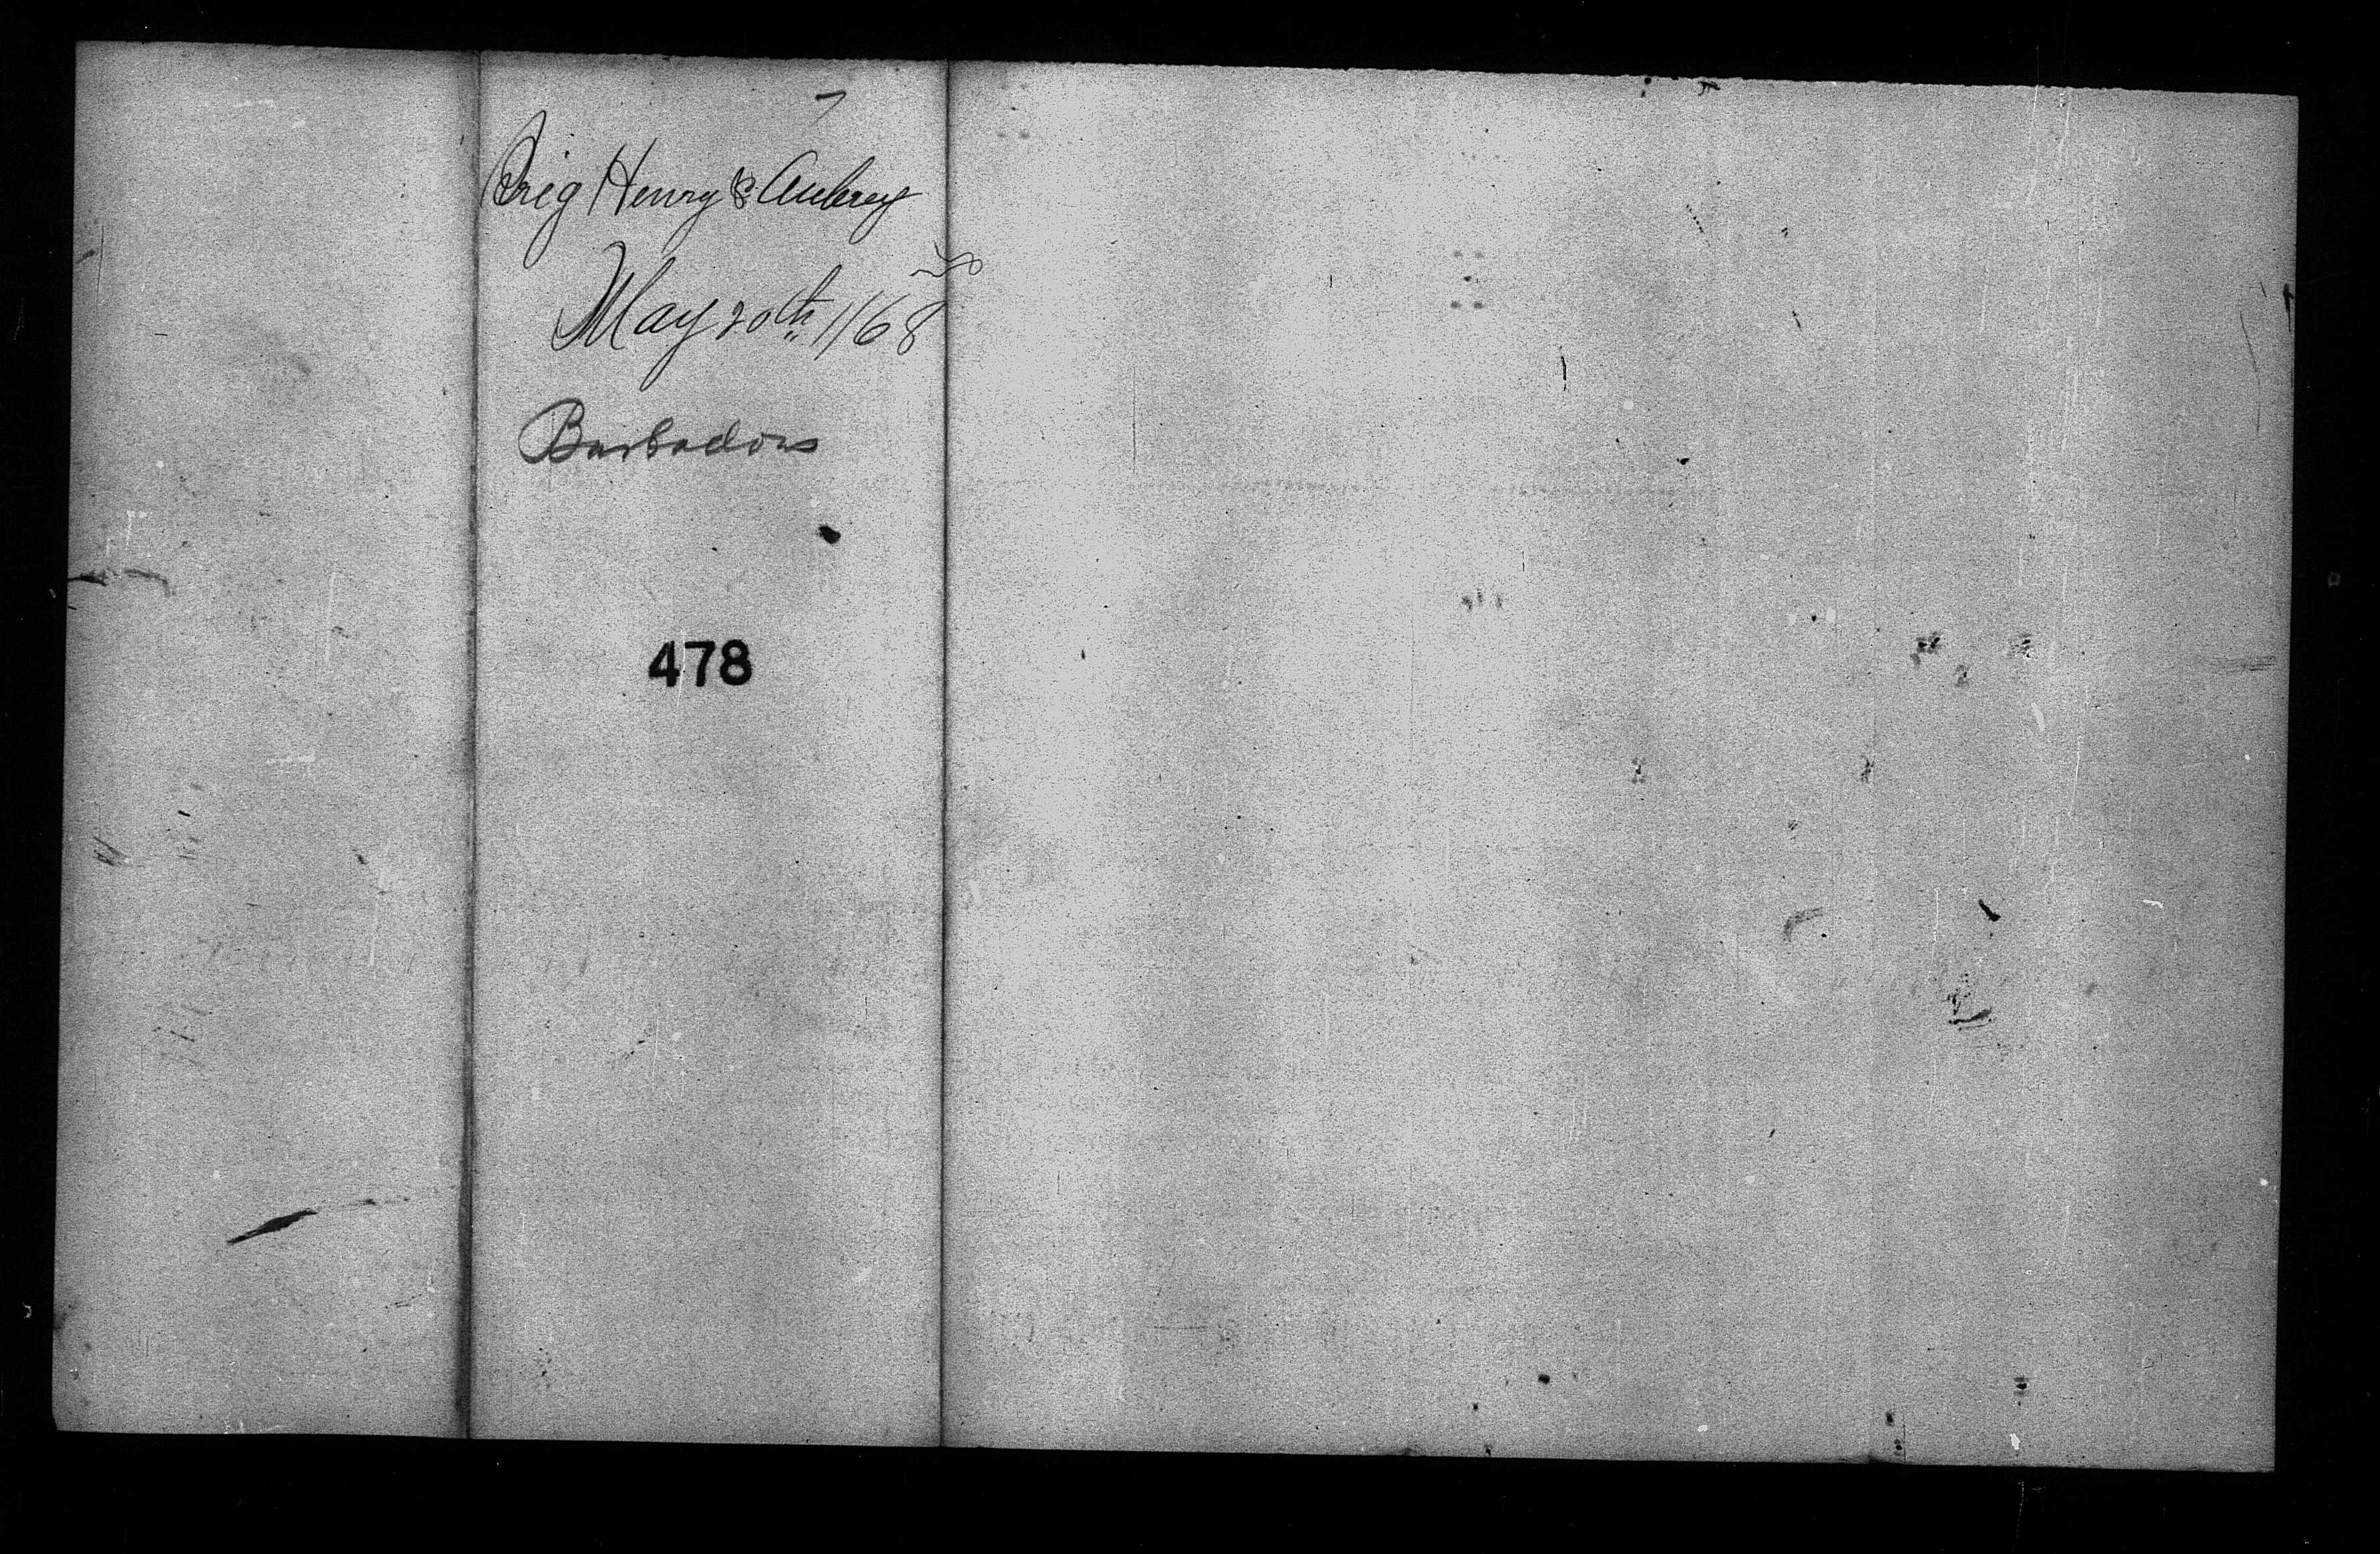 Brig Henry & Aubrey
May 20th 1868
Barbadoes
478